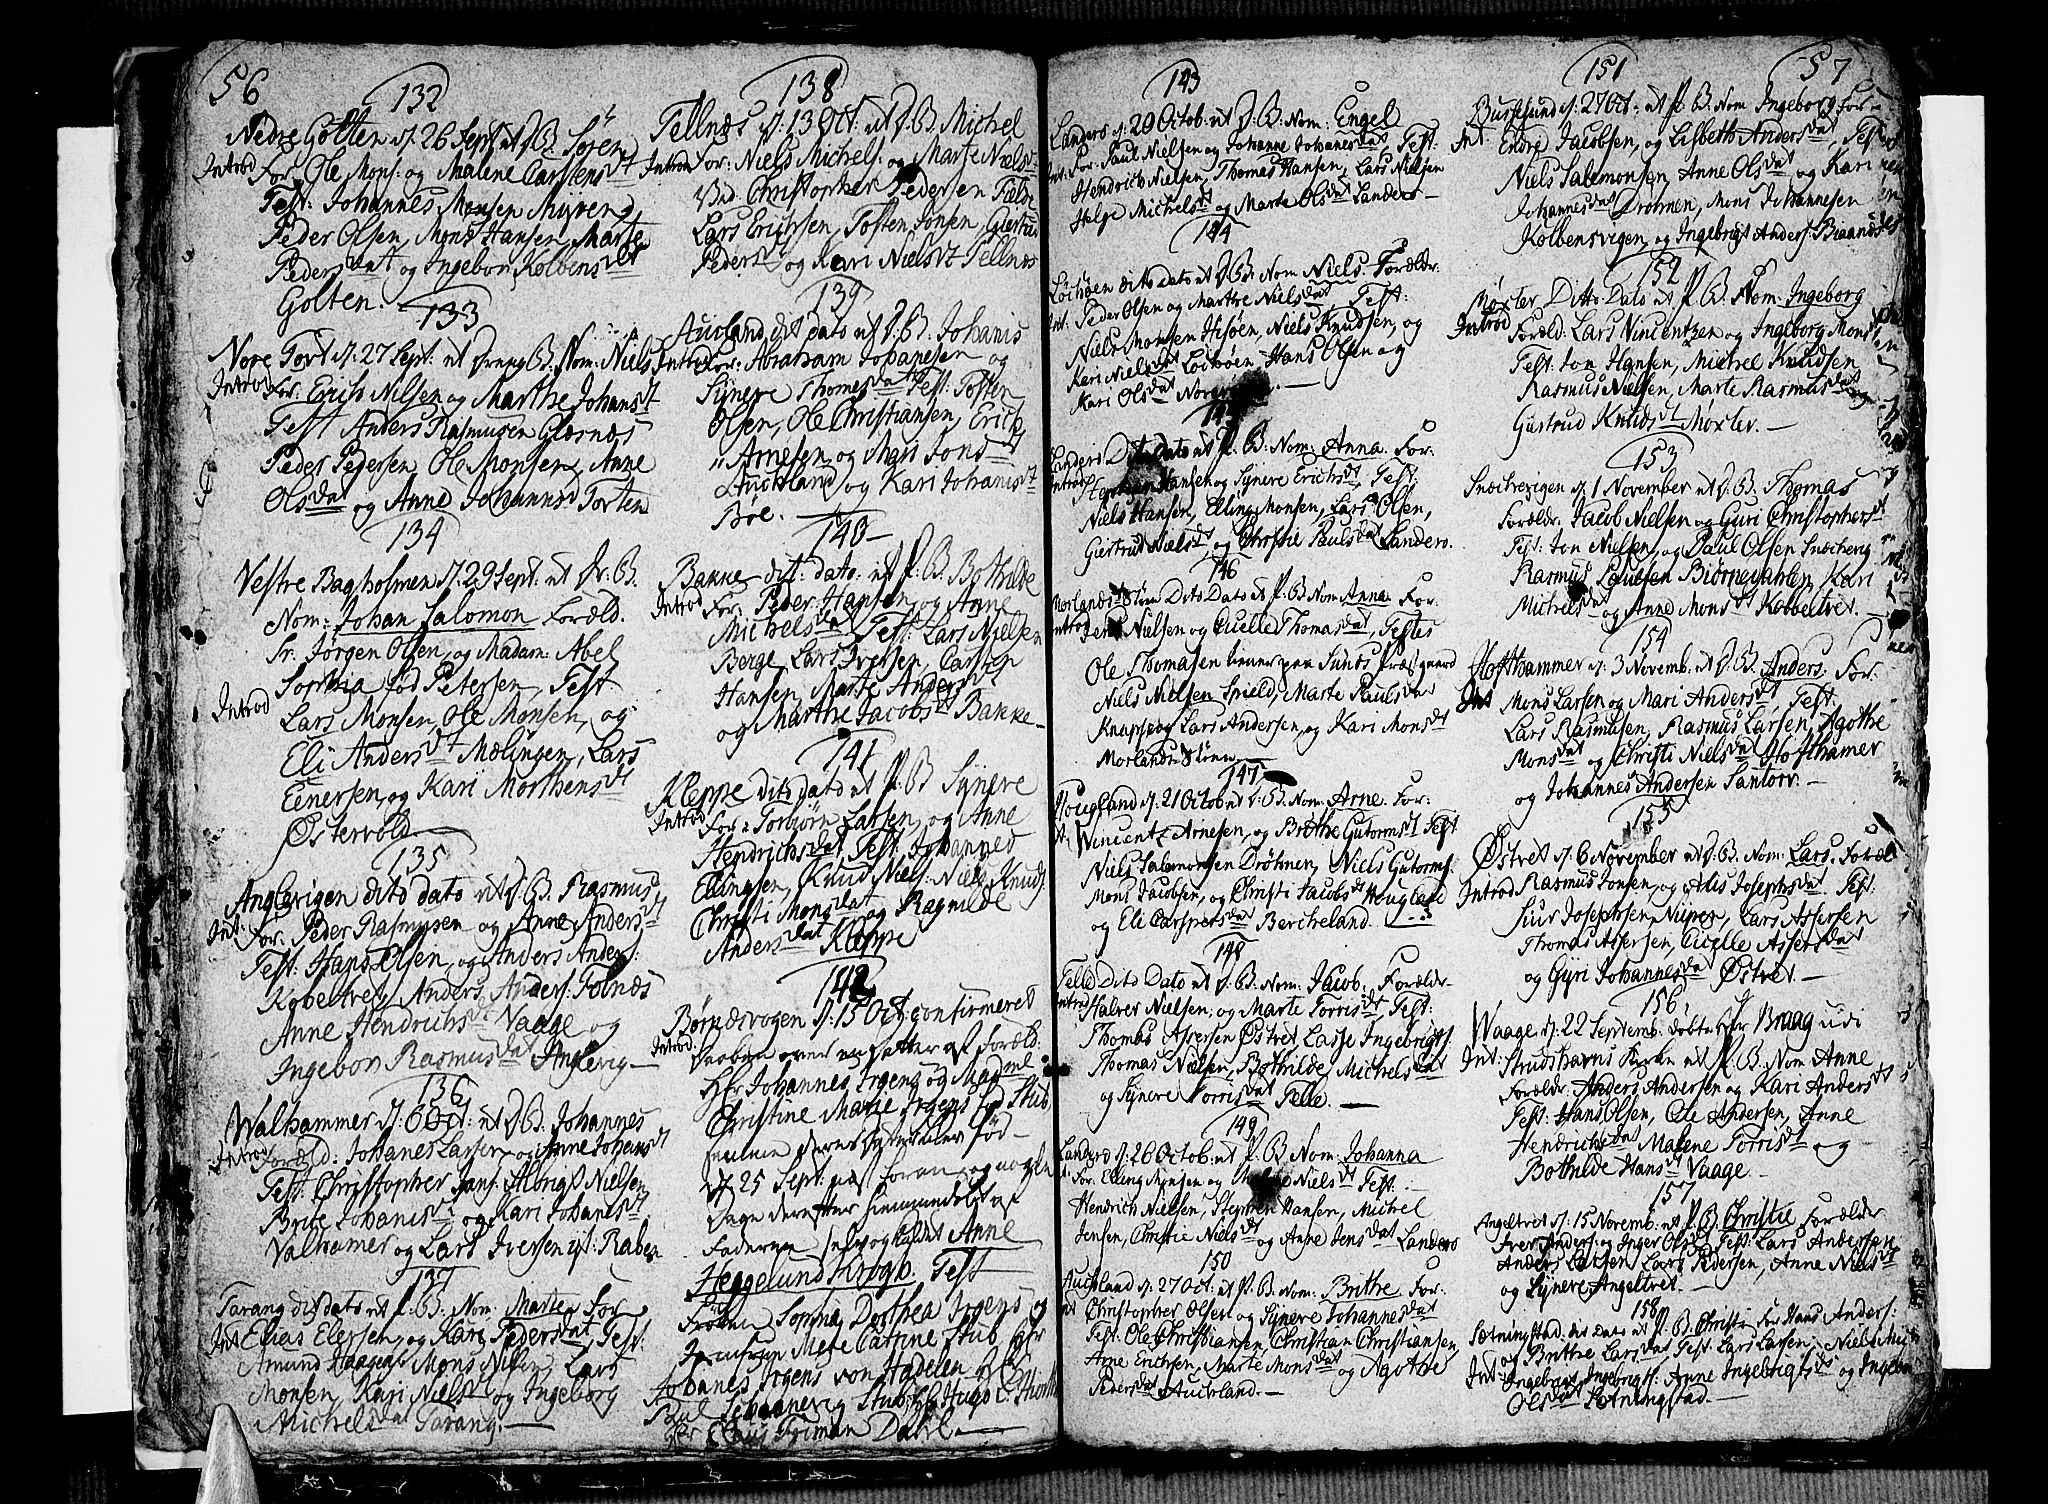 56
132
Nedre Golten d. 26 Sept. ut P. B. Søren
Introd For. Ole Mons: og Malene Carstensdt
Test: Johannes Monsen Myreng
Peder Olsen, Mons Hansen, Marte
Pedersdat og Ingebor Kolbensdt
Golten.
133
Nore Tort d. 27 Sept: ut B. Nom: Niels
Introd For. Erich Nilsen og Marthe Johansdt
Test Anders Rasmusen Glæsnæs
Peder Pedersen, Ole Monsen, Anne
Olsdat og Anne Johannsd Torten
134
Vestre Bagholmen d. 29 Sept. ut Pr. B.
Nom: Johan Salomon Foræld.
Sr. Jørgen Olsen, og Madam: Abel
Sophia fød Petersen, Test.
Introd
Lars Monsen, Ole Monsen, og
Eli Andersdt Mælingen, Lars
Einersen, og Kari Morthensdt
Østervold
135
Anglevigen dito dato ut P. B. Rasmus
Int: For. Peder Rasmusen og Anne Andersdt
Test: Hans Olsen, og Anders Anders:
Kobeltvet, Anders Anders: Tofnæs
Anne Hendrichsdt Vaage og
Ingebor Rasmusdat Anglevig
136
Walhammer d. 6 Oct: ut P. B. Johannes
Introd Foræld: Johanes Larsen og Anne Johansdt
Test. Christopher Jans: Albrigt Nielsen
Brite Johanisdt og Kari Johanisdt
Valhamer og Lars Iversen yt: Raben
137
Tarang dit dato ut P. B. Nom: Marte For
Int Elias Elersen, og Kari Pedersdat, Test.
Amund Haagens: Mons Nilsen, Lars
Monsen, Kari Nielsdt og Ingeborg
Michelsdat Tarang.
138
Tellnæs d. 13 Oct. ut P. B. Michel
Introd For: Niels Michels: og Marte Nielsdt
Ved Christopher Pedersen Fielde
Lars Erichsen, Tosten Jonsen, Giertrud
Pedersdt og Kari Nielsdt Tellnæs
139
Aucland dit dato ut P. B. Johanis
Introd For: Abraham Johanesen og
Synere Thomesdat Test. Tosten
Olsen, Ole Christiansen, Erick
Arnesen, og Mari Jonsdt
Auckland og Kari Johanisdt
Bøe.
140
Bakke dit: dato: ut P. B. Bothilde
Introd For: Peder Hansen, og Anne
Michelsdat Test: Lars Nielsen
Berge, Lars Iversen, Carsten
Hansen, Marte Andersdt
og Marthe Jacobsdt Bakke
141
Kleppe dito dato ut P. B. Synere
Introd For: Torbiørn Larsen, og Anne
Hendrichsdat, Test. Johannes
Ellingsen, Knud Niels: Niels Knuds.
Christi Monsdat og Ragnilde
Andersdat Kleppe
142
Børnæsvogen d. 15 Oct. confirmeret
Introd daaben over en datter af foræld:
Hr. Johannes Irgens og Madme
Christine Marie Irgens fød Stub,
d. 25 Sept.
Dage derefter hiemmedøbt af
Faderen selv og kaldet Anne
Heggelund Krogh. Test
Frøken Sophia Dorthea Irgens og
Jomfrue Mette Catrine Stub Hr
Johanes Irgens von Hadelen
Claus Friman Dahl
143
Landero d. 20 Octob. ut P. B. Nom: Engel
Int. For. Paul Nielsen og Johanne Johanesdat, Test.
Hendrich Nielsen, Thomas Hansen, Lars Nielsen
Helge Michelsdt og Marte Olsdat Landero
144
Løchøen dito dato ut P. B. Nom Niels. Forældr.
Int. Peder Olsen og Marthe Nielsdat, Test:
Niels Monsen Hisøen, Niels Knudsen, og
Kari Nielsdt Løchøen Hans Olsen og
Kari Olsdat
Landero Dit Dato ut P. B: Nom: Anna. For:
Introd Hansen og Synere Erichsdt, Test:
Niels Hansen, Elling Monsen, Lars Olsen,
Giertrud Nielsdt, og Christie Paulsdat Landero.
146
Morlands Dito Dato ut P. B: Nom Anna For:
Introd Jens Nielsen og Cicelle Thomasdat, Testes
Ole Thomasen tiener paa Sunds Præsgaard
Niels Nielsen Spield, Marte Paulsdat
Knapskog Lars Andersen, og Kari Monsdt
Morlands
147
Hougland d. 21 Octob ut P. B. Nom: Arne. For:
Wincentz Arnesen, og Brithe Gutormsdt Test
Niels Salamonsen Drøhnen, Niels Gutorms:
Mons Jacobsen, og Christi Jacobsdt Hougland
og Eli Caspersdat Bercheland.
148
Telle Dito Dato ut P. B: Nom: Jacob. Forældr.
Introd Halver Nielsen, og Marte Torrisdt, Test:
Thomas Assersen Østret Lasse Ingebrigts.
Thomas Nielsen, Bothilde Michelsdat
og Synere Torrisdat Telle.
149
Landero d. 26 Octob: ut P. B Nom: Johanna
For: Elling Monsen og Nielsdt Test.
Hendrich Nielsen, Stephen Hansen, Michel
Jensen, Christie Nielsdt og Anne Jensdat Landero
150
Auchland d. 27 Oct: ut P. B: Nom: Brithe For:
Int Christopher Olsen og Synere Johannesdat
Test: Ole Christiansen, Christian Christiansen,
Arne Erichsen, Marte Monsdat og Agothe
Pedersdat Aucrland.
151
57
Bussesund d. 27 Oct: ut P. B: Nom Ingeborg For:
Int Endre Jacobsen, og Lisbeth Andersdat, Test:
Niels Salemonsen, Anne Olsdat og Kari
Johannesdat Drønen, Mons Johannesen
Kolbensvigen og Ingebrigt Anders: Biaanæs
152
Møxter Ditto Dato ut P. B Nom: Ingeborg
Introd Foræld: Lars Vincentzen og Ingeborg Monsdt
Test: Jon Hansen, Michel Knudsen
Rasmus Nielsen, Marte Rasmusdat og
Giertrud Knudsdt Møxter.
153
Snechevigen d. 1 November ut P. B: Thomas
Forældr. Jacob Nielsen og Guri Christophersdt
Test: Jon Nielsen, og Paul Olsen Snechevig
Rasmus Biørnedahlen, Kari
Michelsdat og Anne Monsdt Kobbeltvet.
154
Hofthammer d. 3 Novemb. ut P. B: Anders. For:
Int Mons Larsen og Mari Andersdt, Test.
Lars Rasmusen, Rasmus Larsen, Agothe
Monsdat og Christi Nielsdat Hofthamer
og Johannes Andersen Santorv.
155
Østret d. 6 November ut P. B: Nom: Lars. Foræl
Introd Rasmus Jonsen, og Josephsdat Test.
Siur Josephsen, Lars Assersen
Thomas Assersen, Cicelle Assersdat
og Gyri Johannesdat Østret.
156
Waage d. 22 Septemb. døbt af Hr Braag udi
Int: Strudshavns Kirke ut P. B. Nom Anne
Forældr: Anders Andersen og Kari Andersdt
Test: Hans Olsen, Ole Andersen, Anne
Hendrichsdat, Malene Torrisdt og
Bothilde Hansdt Vaage.
157
Angeltvet d. 15 Novemb. ut P. B: Christie Forældr
Iver Anders: og Inger Olsdt, Test: Lars Andersen
Anders Larsen Lars Pedersen, Anne Nielsdt
og Synere Angeltvet.
158
Sætningstad dit dato ut P. B Christi For Hans Anders:
og Brithe Larsdat Test: Lars Larsen, Niels
Int: Ingebrigt Ingebrigts: Anne Ingebrigtsdt og Ingebor
Olsdat Sætningstad.